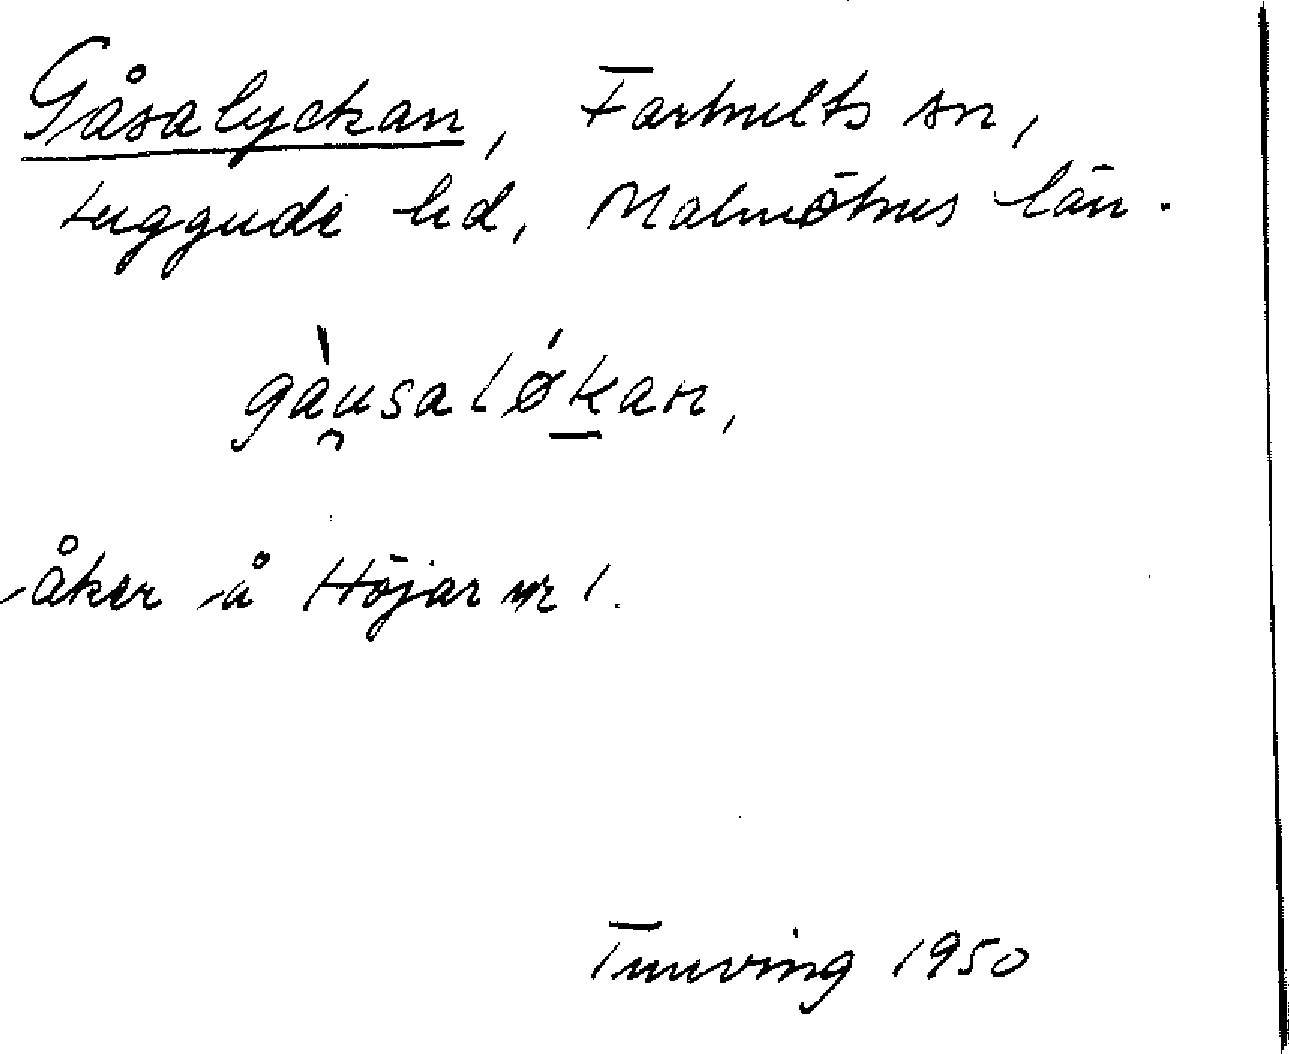 Gåsalyckan, Farhults sn,
Luggude hd, Malmöhus län.
gàu̯saløḱan,
åker å Höjar nr 1.
Tuneving 1950